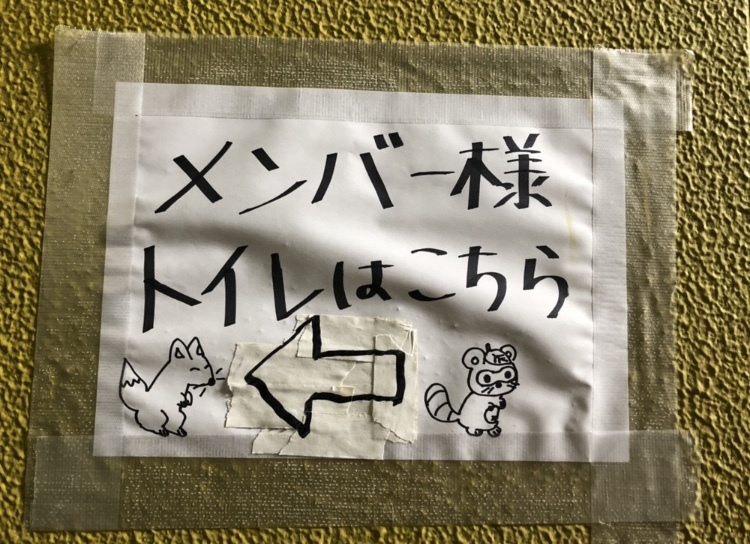 メンバー様
トイレはこちら